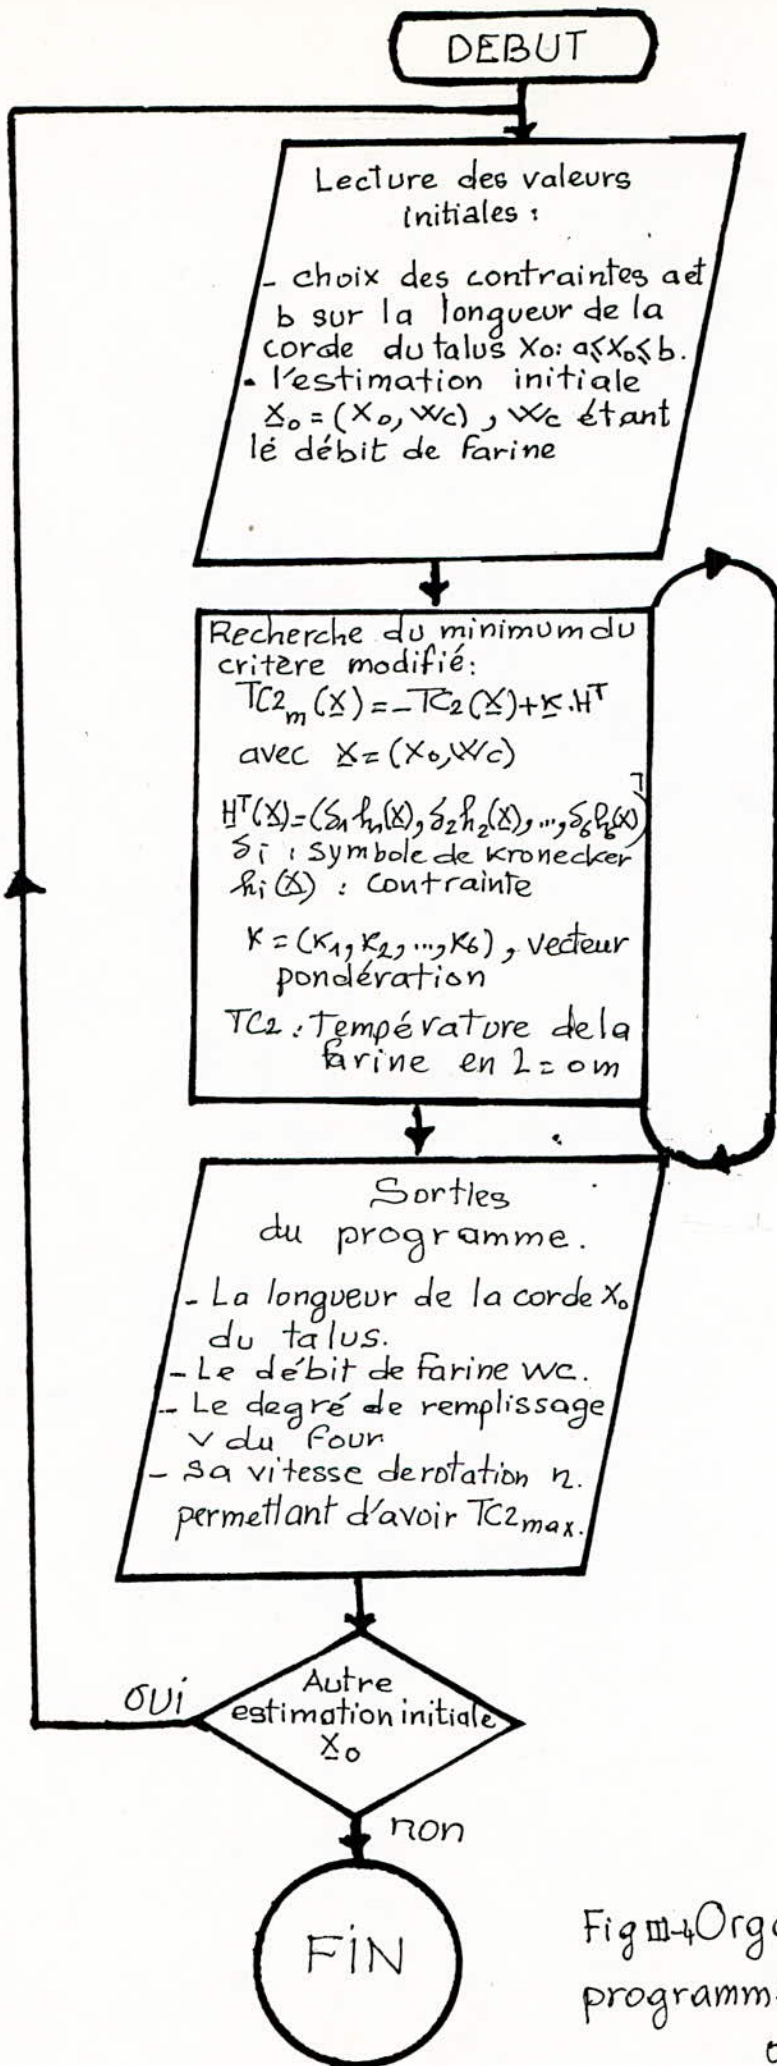 DEBUT
Lecture des valeurs
initiales :
- choix des contraintes a et
b sur la longueur de la
corde du talus X₀: a⩽X₀⩽b.
• l'estimation initiale
X̲₀ = (X₀, Wc) , Wc étant
le débit de farine
Recherche du minimum du
critère modifié:
TC2ₘ(X̲) = -TC2(X̲) + K̲.Hᵀ
avec X̲ = (X₀, Wc)
H̲ᵀ(X̲) = (δ₁h₁(X̲), δ₂h₂(X̲), ..., δ₆h₆(X̲))ᵀ
δi : symbole de Kronecker
hi(X̲) : contrainte
K = (K₁, K₂, ..., K₆) , vecteur
pondération
TC2 : Température de la
farine en L = 0 m
Sorties
du programme.
- La longueur de la corde X₀
du talus.
- Le débit de farine Wc.
- Le degré de remplissage
V du four
- sa vitesse de rotation n.
permettant d'avoir TC2max.
Autre
oui
estimation initiale
X̲₀
non
FiN
Fig III-4
programm